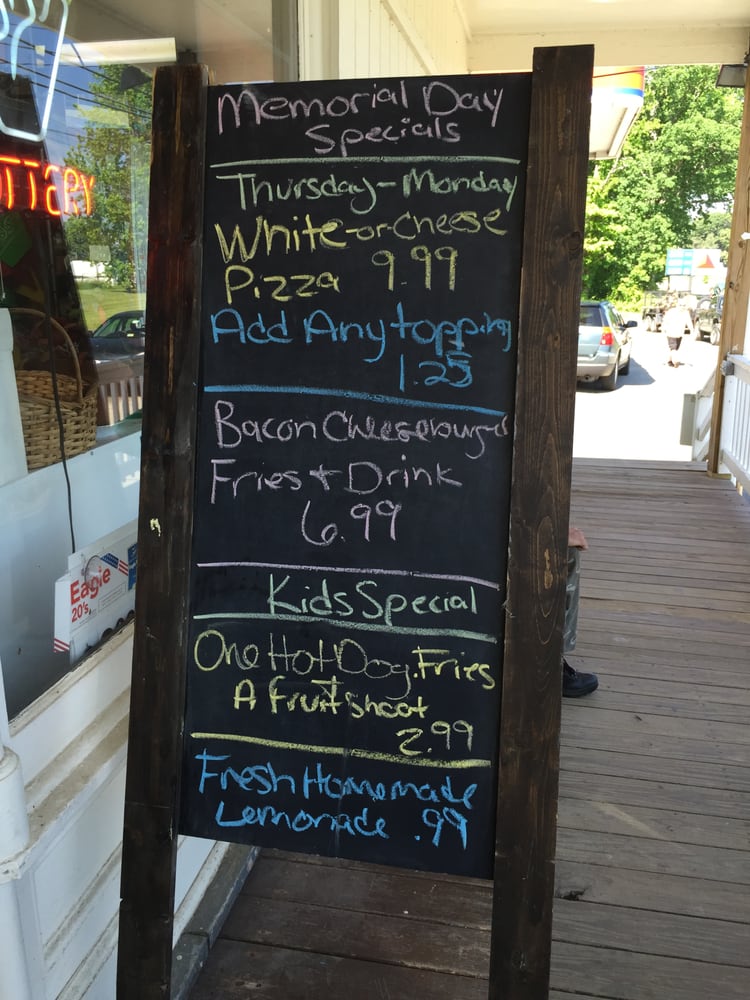 Memorial Day
Specials
Thursday-Monday
White-or-Cheese
Pizza 9.99
Add Any topping
1.25
Bacon Cheeseburger
Fries + Drink
6.99
Kids Special
One Hot Dog. Fries
A fruit shoot
2.99
Fresh Homemade
Lemonade .99
OTTERY
Eagle
20's